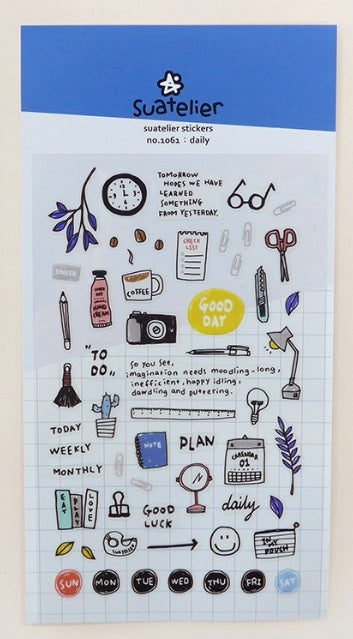 Suatelier
suatelier stickers
no.1061 : daily
TOMORROW
HOPES WE HAVE
LEARNED
SOMETHING
FROM YESTERDAY.
CHECK
LIST
ERASER
HAND
CREAM
COFFEE
GOOD
DAY
"TO
DO"
SO YOU SEE,
imagination needs moodling-long,
inefficient, happy idling,
dawdling and puttering.
TODAY
WEEKLY
MONTHLY
NOTE
PLAN
CALENDAR
01
EAT
PLAY
LOVE
GOOD
LUCK
daily
SUATELIER
IN MY
POUCH
SUN MON TUE WED THU FRI SAT